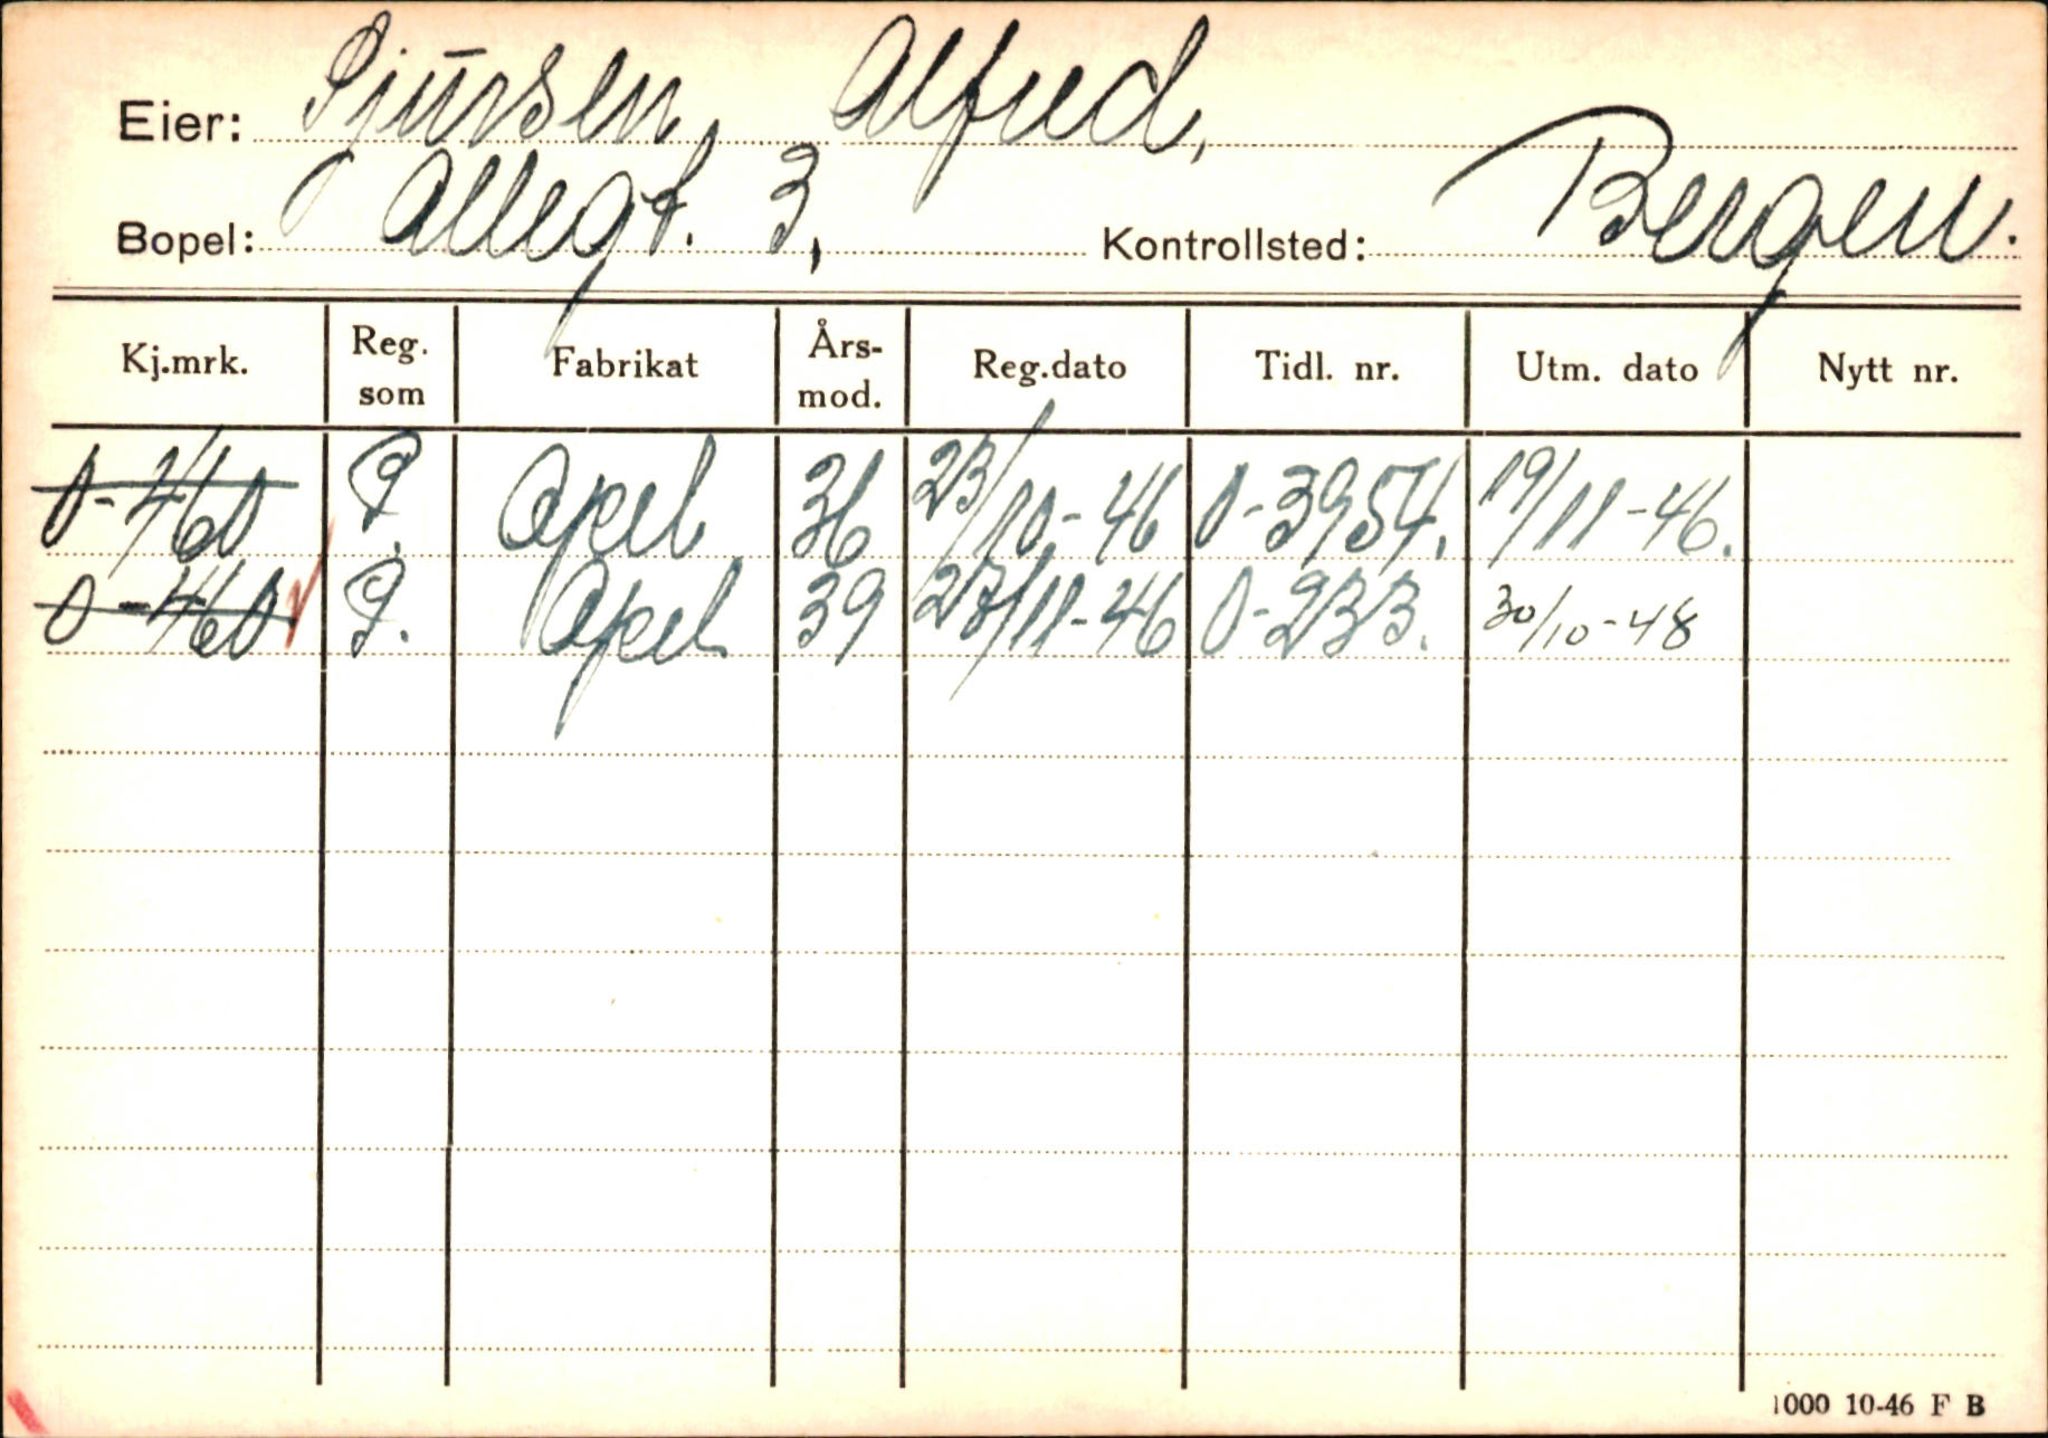 Eier: Sjursen, Alfred,
Bopel: Allegt. 3, Kontrollsted: Bergen.
Kj.mrk. Reg. som Fabrikat Års-mod. Reg.dato Tidl. nr. Utm. dato Nytt nr.
O-460 P. Opel 36 23/10-46 O-3954. 19/11-46.
O-460 P. Opel 39 27/11-46 O-233. 30/10-48
1000 10-46 F B